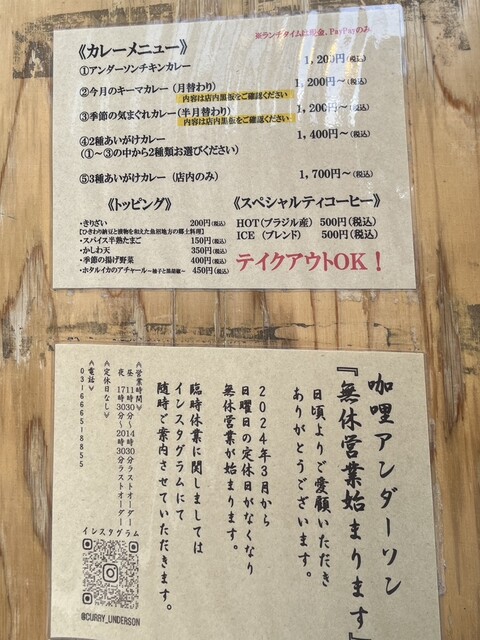 《カレーメニュー》
※ランチタイムは現金、PayPayのみ
①アンダーソンチキンカレー 1,200円(税込)
②今月のキーマカレー(月替わり) 1,200円〜(税込)
内容は店内黒板をご確認ください
③季節の気まぐれカレー(半月替わり) 1,200円〜(税込)
内容は店内黒板をご確認ください
④2種あいがけカレー 1,400円〜(税込)
(①〜③の中から2種類お選びください)
⑤3種あいがけカレー(店内のみ) 1,700円〜(税込)
《トッピング》
・きりざい 200円(税込)
【ひきわり納豆と漬物を和えた魚沼地方の郷土料理】
・スパイス半熟たまご 150円(税込)
・かしわ天 350円(税込)
・季節の揚げ野菜 400円(税込)
・ホタルイカのアチャール〜柚子と黒胡椒〜 450円(税込)
《スペシャルティコーヒー》
HOT(ブラジル産) 500円(税込)
ICE(ブレンド) 500円(税込)
テイクアウトOK!
咖哩アンダーソン
『無休営業始まります』
日頃よりご愛顧いただき
ありがとうございます。
2024年3月から
日曜日の定休日がなくなり
無休営業が始まります。
臨時休業に関しましては
インスタグラムにて
随時ご案内させていただきます。
《営業時間》
昼 11時30分〜14時30分ラストオーダー
夜 17時30分〜20時30分ラストオーダー
《定休日なし》
《電話》
03-6665-8855
インスタグラム
@CURRY_UNDERSON